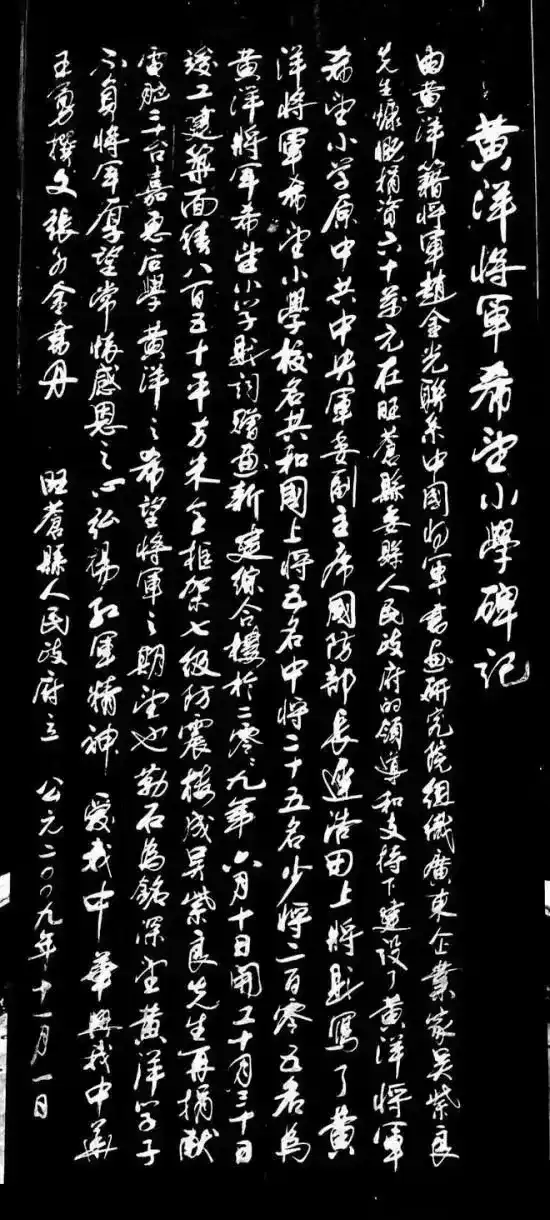 黄洋将軍希望小學碑記
由黄洋籍将軍趙金光聯系中國将軍書畫研究院組織廣東企業家吴紫良
先生慷慨捐資六十萬元在旺蒼縣委縣人民政府的領導和支持下建設了黄洋将軍
希望小学原中共中央軍委副主席國防部長遲浩田上将題寫了黄
洋将軍希望小學校名共和國上将五名中将二十五名少将二百零五名為
黄洋将军希望小学題詞贈畫新建综合樓於二零零九年六月十日開工十月三十日
竣工建築面積八百五十平方米全框架七级防震樓成吴紫良先生再捐献
電脑三十台嘉惠后學黄洋之希望将軍之期望也勒石為銘深望黄洋学子
不負将军厚望常懷感恩之心弘揚红軍精神 爱我中華興我中華
王勇撰文張 金書丹 旺蒼縣人民政府立 公元二〇〇九年十一月一日